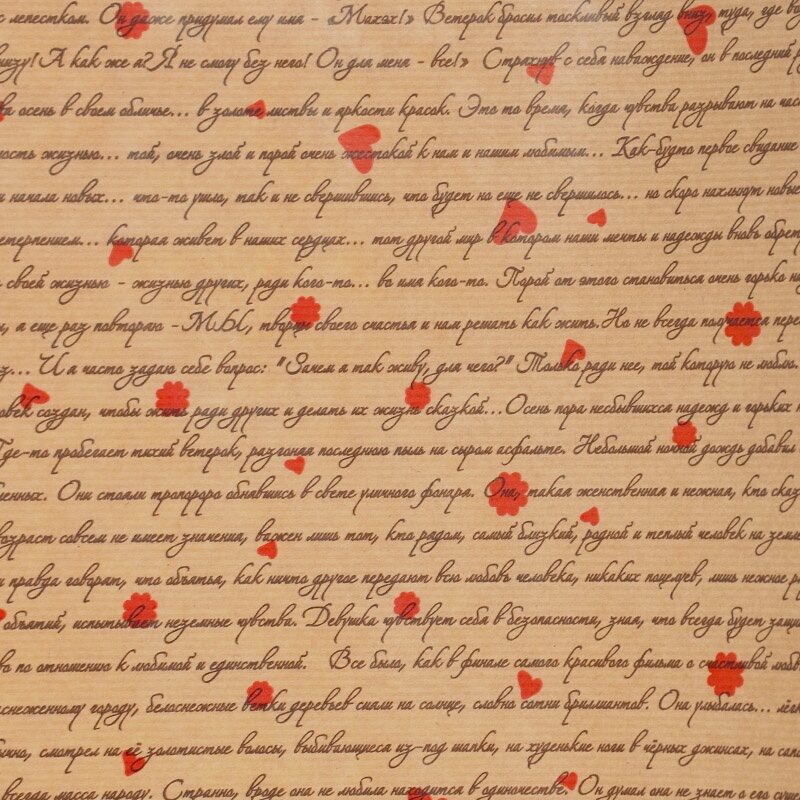 с лепестком. Он даже придумал ему имя - «Махэх!» Ветерок бросил тоскливый взгляд вниз, туда, где
низу! А как же я? Я не смогу без него! Он для меня - все!» Страхнув с себя наваждение, он в последний
осень в своем обличье... в золоте листвы и яркости красок. Это то время, когда чувства разрывают на
жизнью... той, очень злой и порой очень жестокой к нам и нашим любимым... Как-будто первое свидание
и начала новых... что-то ушло, так и не свершившись, что будет но еще не свершилось... но скоро нахлынут новые
которая живет в наших сердцах... тот другой мир в котором наши мечты и надежды вновь
своей жизнью - жизнью других, ради кого-то... во имя кого-то. Порой от этого становиться очень горько
а еще раз повторяю - МЫ, творцы своего счастья и нам решать как жить. Но не всегда получается
И я часто задаю себе вопрос: "Зачем я так живу, для чего?" Только ради нее, той которую не люблю.
создан, чтобы жить ради других и делать их жизнь сказкой... Осень пора несбывшихся надежд и горьких
Где-то пробегает тихий ветерок, разгоняя последнюю пыль на сыром асфальте. Небольшой ночной дождь добавил
Они стояли тропороро обнявшись в свете уличного фонаря. Она, такая женственная и нежная, кто
возраст совсем не имеет значения, важен лишь тот, кто рядом, самый близкий, родной и теплый человек на
и правда говорят, что объятья, как ничто другое передают всю любовь человека, никаких поцелуев, лишь нежное
объятий, испытывает неземные чувства. Девушка чувствует себя в безопасности, зная, что всегда будет
по отношению к любимой и единственной. Все было, как в финале самого красивого фильма о счастливой
городу, белоснежные ветки деревьев сияли на солнце, словно сотни бриллиантов. Она улыбалась...
смотрел на её золотистые волосы, выбивающиеся из-под шапки, на худенькие ноги в чёрных джинсах, на
всегда масса народу. Странно, вроде она не любила находится в одиночестве. Он думал она не знает о его